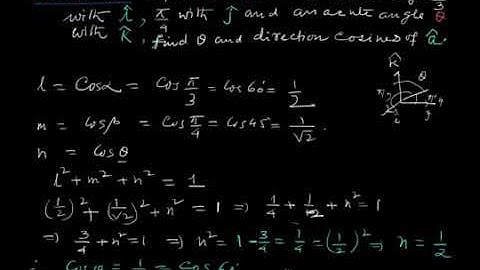 3
with î, π/4 with ĵ and an acute angle θ
with k̂, find θ and direction cosines of â.
k̂
θ
l = Cosα = Cos π/3 = Cos 60° = 1/2
π/4
î
m = Cosβ = Cos π/4 = Cos 45° = 1/√2
n = Cosθ
l² + m² + n² = 1
(1/2)² + (1/√2)² + n² = 1 ⇒ 1/4 + 1/2 + n² = 1
⇒ 3/4 + n² = 1 ⇒ n² = 1 - 3/4 = 1/4 = (1/2)² ⇒ n = 1/2